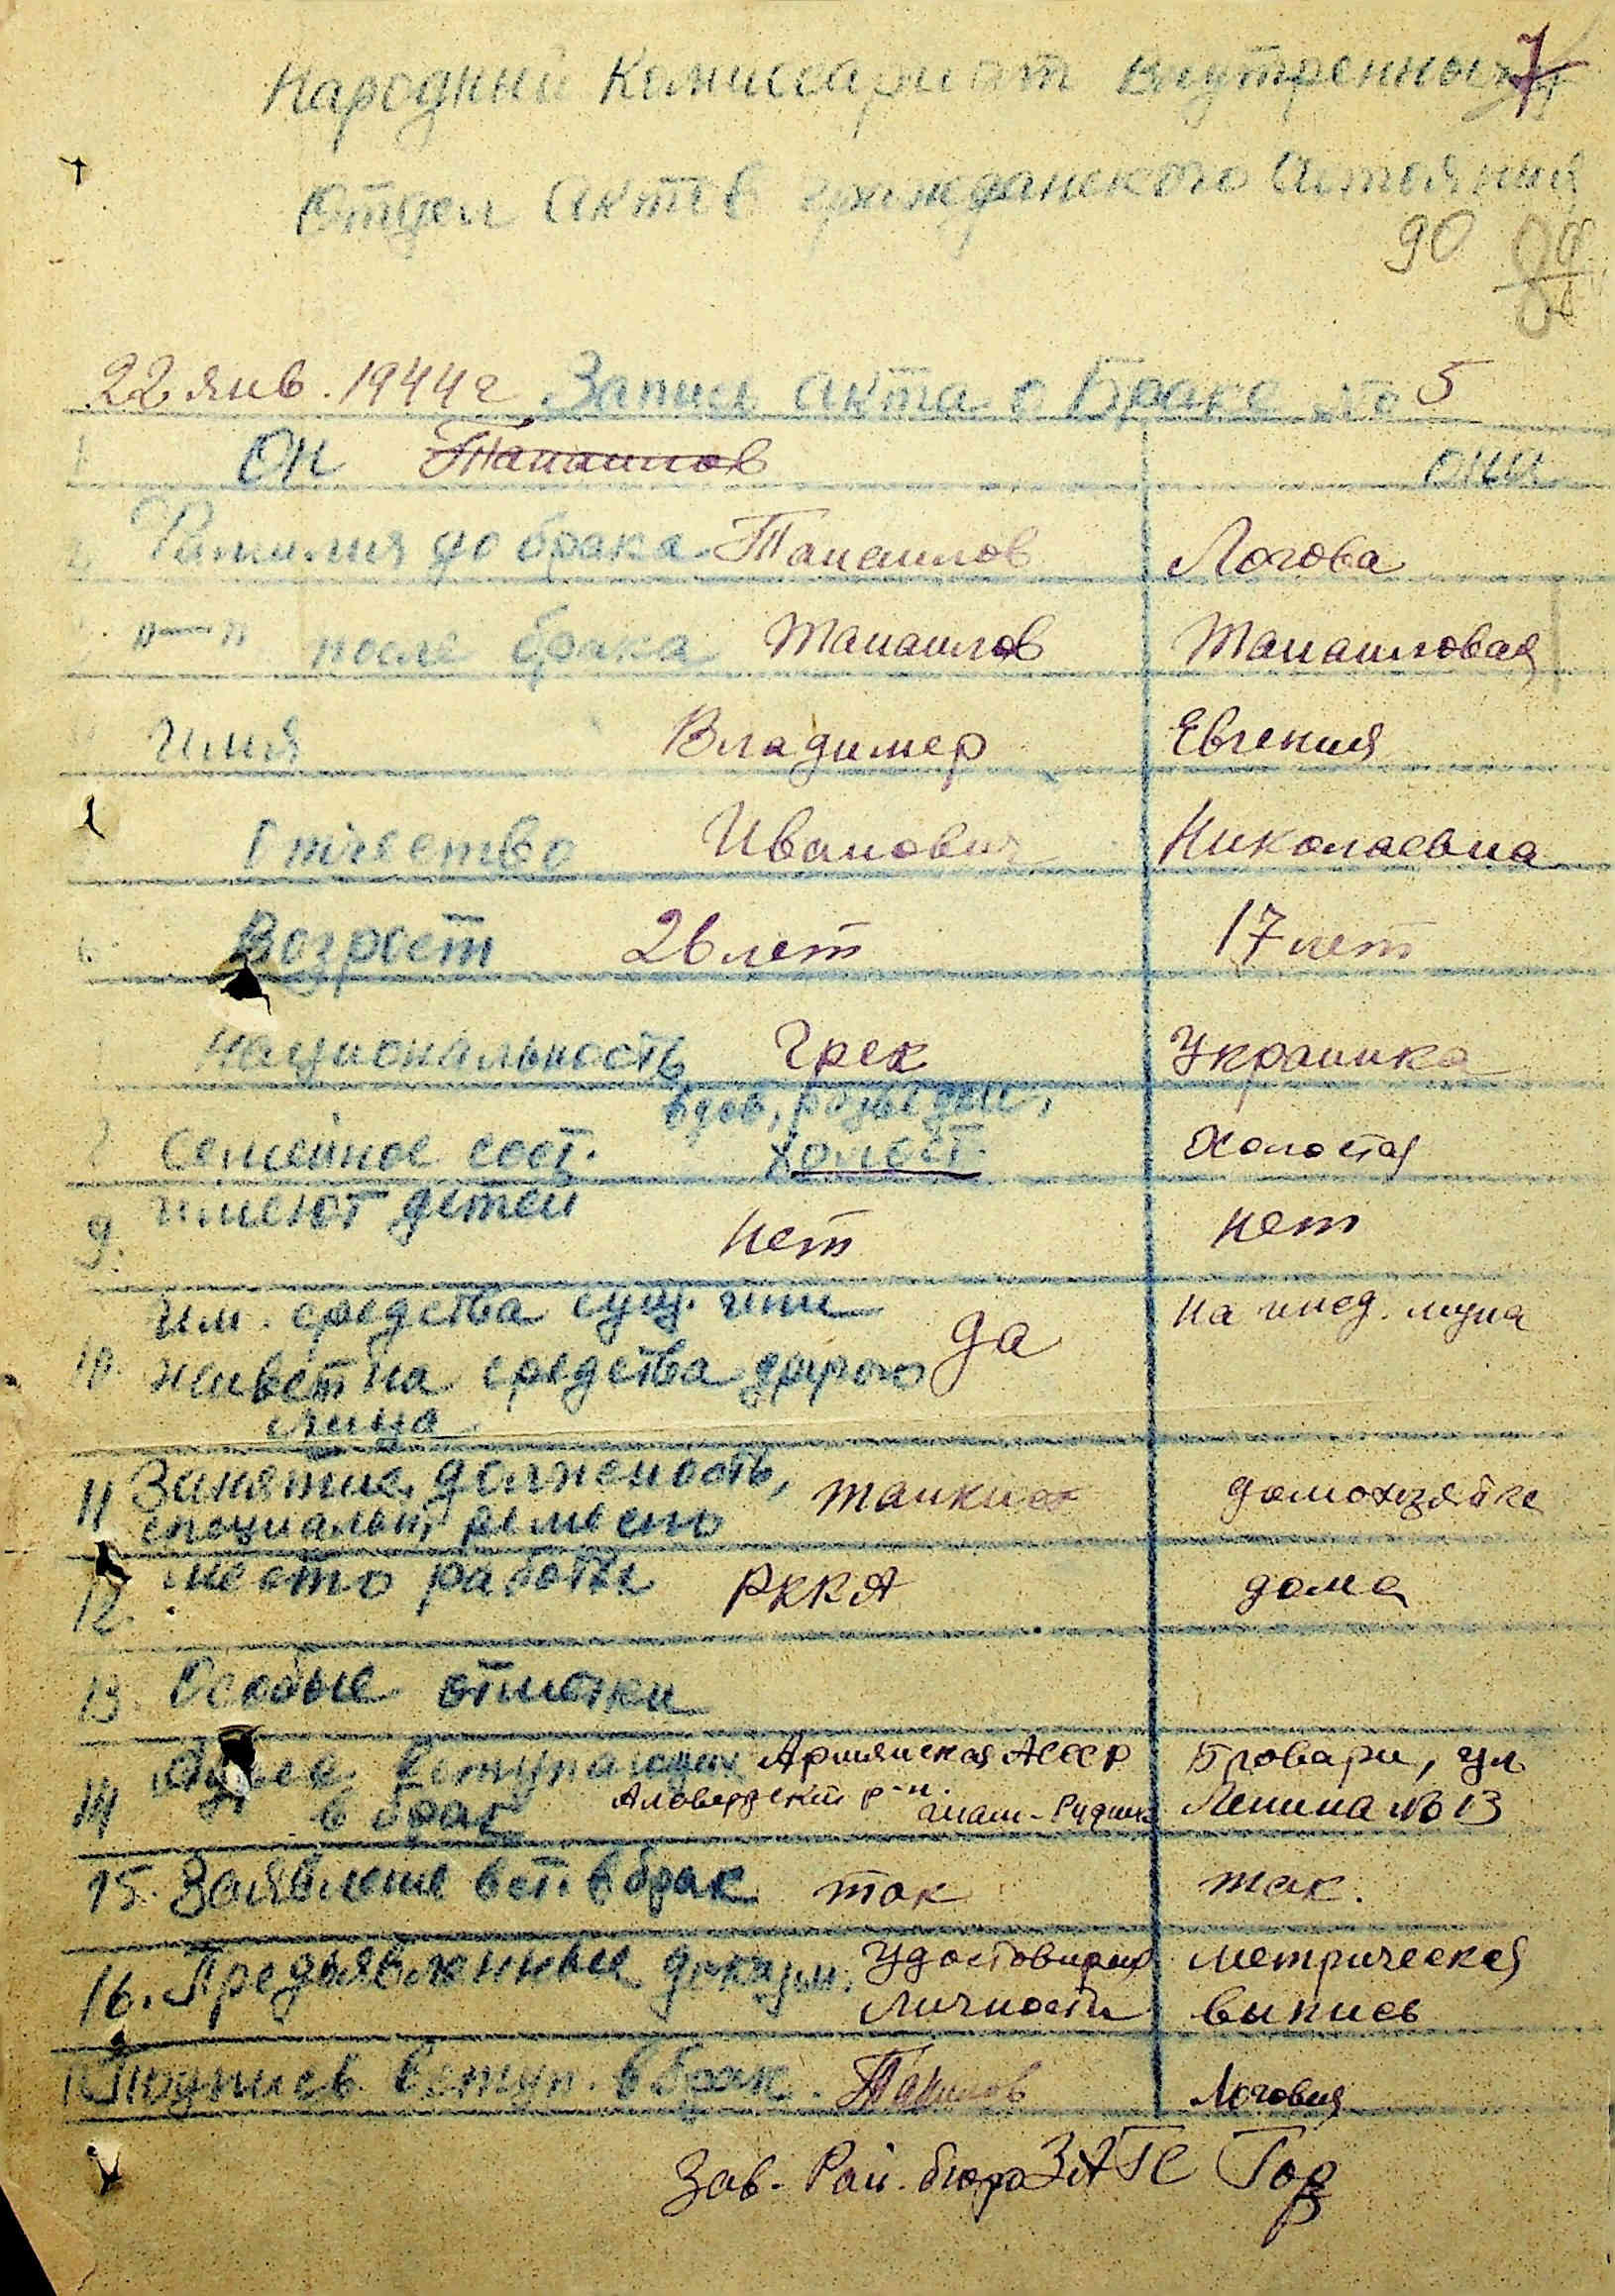 7
Народный Комиссариат Внутренных
Отдел Актов гражданского Астояния
90
22 янв. 1944 г Запись акта о Браке № 5
1 Он Танаилов она
2 Фамилия до брака Танаилов Логова
"—" после брака Танаилов Танаиловая
Имя Владимер Евгения
Отчество Иванович Николаевна
6. Возраст 26 лет 17 лет
Национальность Грек Украинка
вдов, разведен,
Семейное сост. холост. Холостая
9. имеют детей нет нет
Им. средства сущ. или да на ижд. мужа
10. живет на средства другого
лица
11 Занятие, должность, танкист домохозяйка
специальн, ремесло
12. место работы РККА дома
13. Особые отметки
14 Адрес вступающих Армянская АССР Бровари, ул
в брак Алавердский р-н. Ленина № 13
15. Заявление вст. в брак так так.
16. Предъявленные докум. Удостоверен метрическая
личности выпись
Подпись вступ. в брак. Логовая
Зав. Рай. бюро ЗАГС